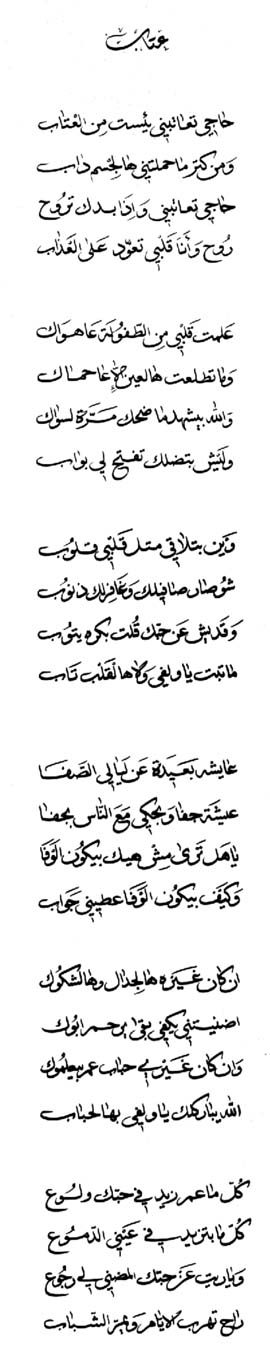 عتاب
حاجي تعاتبني يئست من العتاب
ومن كتر ما حملتني هالجسم داب
حاجي تعاتبني وإذا بدك تروح
روح وأنا قلبي تعوّد على العذاب
علمت قلبي من الطفولة عا هواك
وما تطلعت هالعين إلا عا حماك
والله بيشهد ما ضحك مرّة لسواك
وليش بتضلك تفتح لي بواب
وين بتلاقي متل قلبي قلوب
شو صار صافيلك وغافرلك ذنوب
وقديش عن حبك قلت بكره يتوب
لا تبت يا ولفي ولا هالقلب تاب
عايشه بعيدة عن ليالي الصفا
عيشة جفا وبحكي مع الناس بجفا
يا هل ترى مش هيك بيكون الوفا
وكيف بيكون الوفا عطيني جواب
ان كان غيره هالجدال وهالشكوك
اضنيتني بيكفي بقى يرحم ابوك
وان كان غيري حباب عم بيعلموك
الله يباركلك يا ولفي بهالحباب
كلّ ما عم زيد في حبك ولوع
كلّ ما بتزيد في عيني الدموع
ويا ريت عن حبك المضني لي رجوع
راح تهرب الايام ويمرّ الشباب